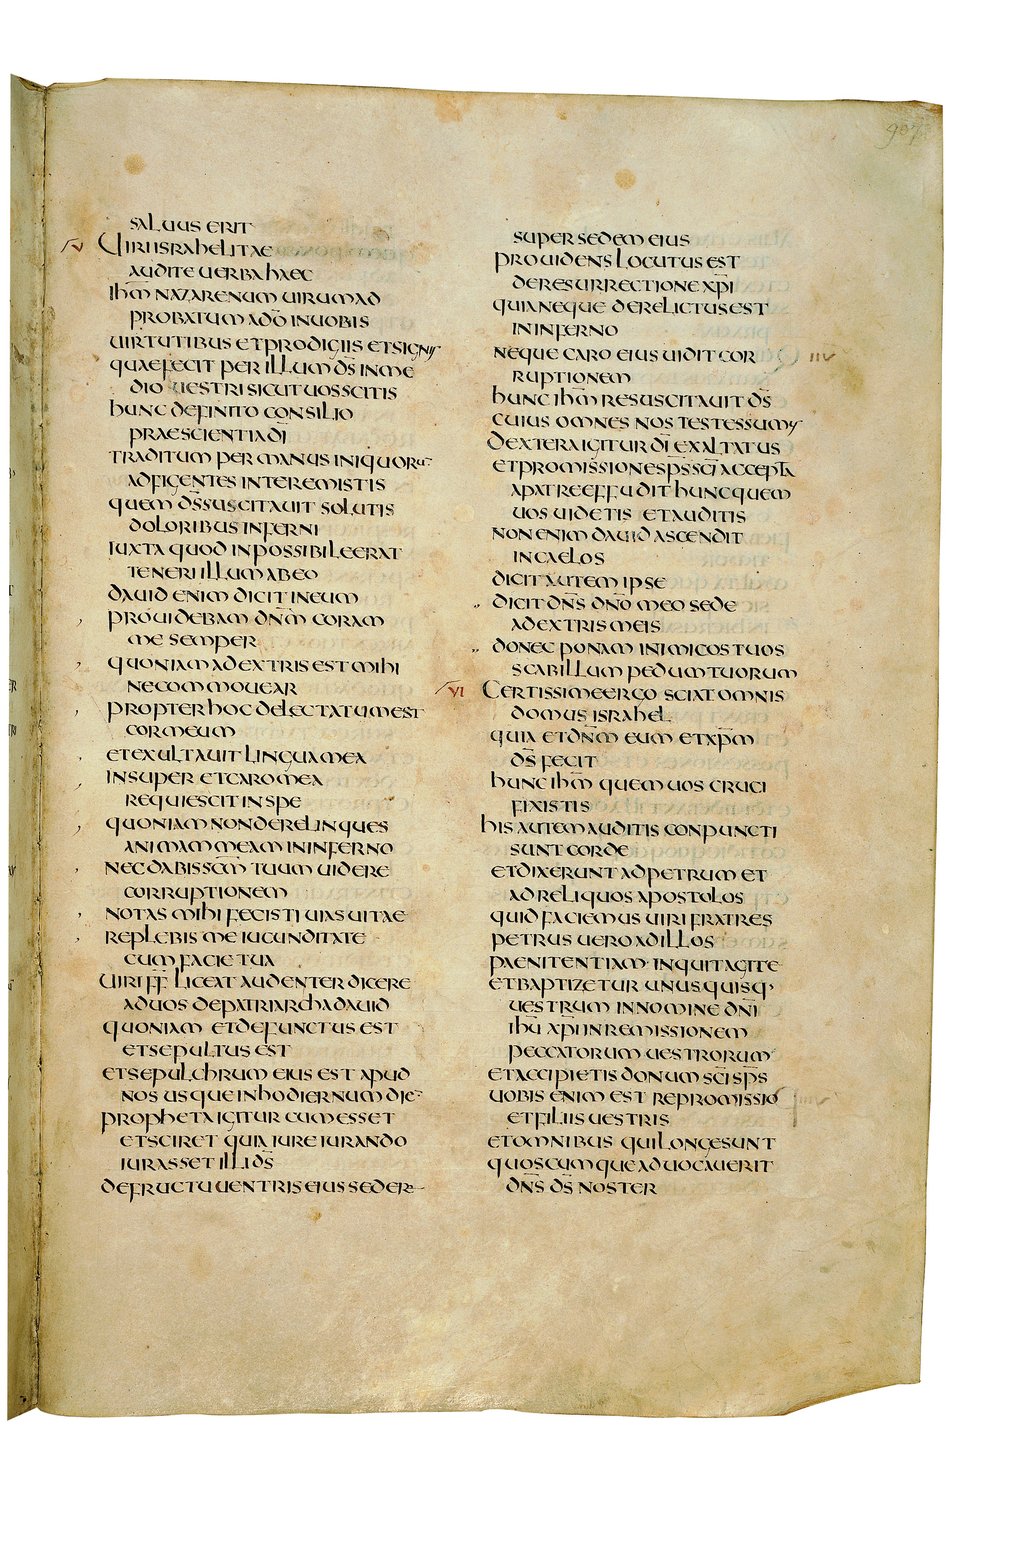 907
SALUUS ERIT
V UIRI ISRAHELITAE
AUDITE UERBA HAEC
IHM̅ NAZARENUM UIRUM AD
PROBATUM A DO̅ IN UOBIS
UIRTUTIBUS ET PRODIGIIS ET SIGNIS
QUAE FECIT PER ILLUM DS̅ IN ME
DIO UESTRI SICUT UOS SCITIS
HUNC DEFINITO CONSILIO
PRAESCIENTIA DI̅
TRADITUM PER MANUS INIQUORU̅
ADFIGENTES INTEREMISTIS
QUEM DS̅ SUSCITAUIT SOLUTIS
DOLORIBUS INFERNI
IUXTA QUOD INPOSSIBILE ERAT
TENERI ILLUM AB EO
DAUID ENIM DICIT IN EUM
PROUIDEBAM DNM̅ CORAM
ME SEMPER
QUONIAM A DEXTRIS EST MIHI
NE COMMOUEAR
PROPTER HOC DELECTATUM EST
COR MEUM
ET EXULTAUIT LINGUA MEA
INSUPER ET CARO MEA
REQUIESCIT IN SPE
QUONIAM NON DERELINQUES
ANIMAM MEAM IN INFERNO
NEC DABIS SCM̅ TUUM UIDERE
CORRUPTIONEM
NOTAS MIHI FECISTI UIAS UITAE
REPLEBIS ME IUCUNDITATE
CUM FACIE TUA
UIRI FF̅ LICEAT AUDENTER DICERE
AD UOS DE PATRIARCHA DAUID
QUONIAM ET DEFUNCTUS EST
ET SEPULTUS EST
ET SEPULCHRUM EIUS EST APUD
NOS USQUE IN HODIERNUM DIE̅
PROPHETA IGITUR CUM ESSET
ET SCIRET QUIA IURE IURANDO
IURASSET ILLI DS̅
DE FRUCTU UENTRIS EIUS SEDERE
SUPER SEDEM EIUS
PROUIDENS LOCUTUS EST
DE RESURRECTIONE XPI̅
QUIA NEQUE DERELICTUS EST
IN INFERNO
NEQUE CARO EIUS UIDIT COR
RUPTIONEM
HUNC IHM̅ RESUSCITAUIT DS̅
CUIUS OMNES NOS TESTES SUMUS
DEXTERA IGITUR DI̅ EXALTATUS
ET PROMISSIONE SPS̅ SCI̅ ACCEPTA
A PATRE EFFUDIT HUNC QUEM
UOS UIDETIS ET AUDITIS
NON ENIM DAUID ASCENDIT
IN CAELOS
DICIT AUTEM IPSE
DICIT DNS̅ DNO̅ MEO SEDE
A DEXTRIS MEIS
DONEC PONAM INIMICOS TUOS
SCABILLUM PEDUM TUORUM
VI CERTISSIME ERGO SCIAT OMNIS
DOMUS ISRAHEL
QUIA ET DNM̅ EUM ET XPM̅
DS̅ FECIT
HUNC IHM̅ QUEM UOS CRUCI
FIXISTIS
HIS AUTEM AUDITIS CONPUNCTI
SUNT CORDE
ET DIXERUNT AD PETRUM ET
AD RELIQUOS APOSTOLOS
QUID FACIEMUS UIRI FRATRES
PETRUS UERO AD ILLOS
PAENITENTIAM INQUIT AGITE
ET BAPTIZETUR UNUSQUISQ·
UESTRUM IN NOMINE DNI̅
IHU̅ XPI̅ IN REMISSIONEM
PECCATORUM UESTRORUM
ET ACCIPIETIS DONUM SCI̅ SPS̅
UOBIS ENIM EST REPROMISSIO
ET FILIIS UESTRIS
ET OMNIBUS QUI LONGE SUNT
QUOSCUMQUE ADUOCAUERIT
DNS̅ DS̅ NOSTER